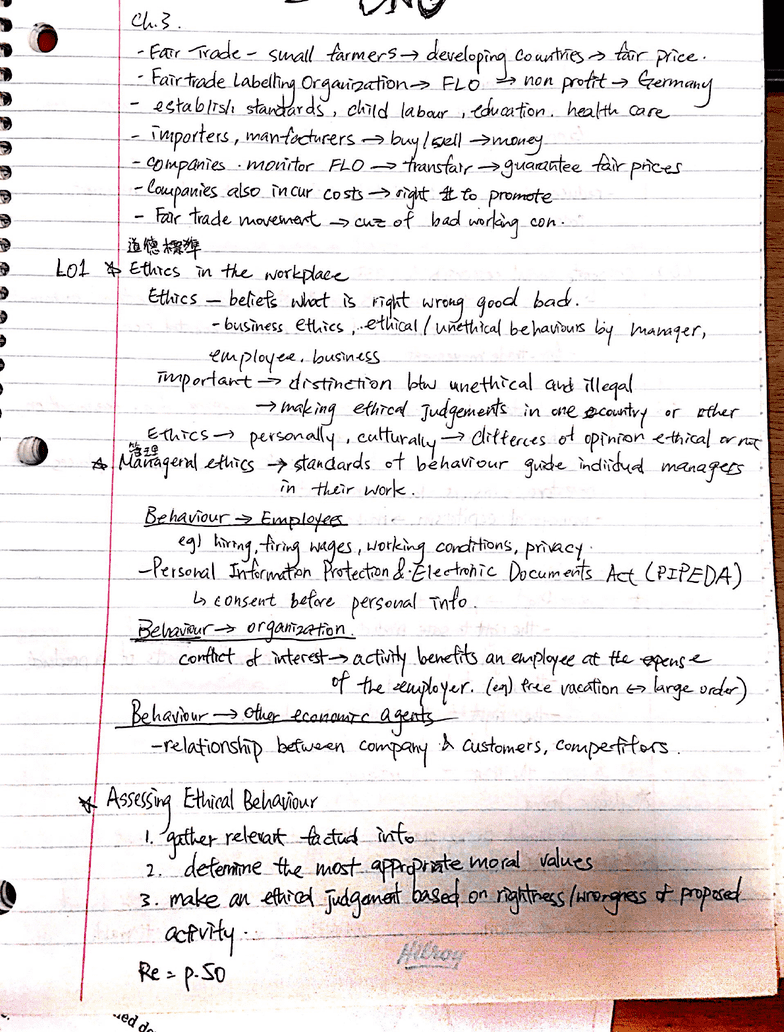 Ch.3.
- Fair Trade - small farmers → developing countries → fair price.
- Fairtrade Labelling Organization → FLO → non profit → Germany
- establish standards, child labour, education. health care
- importers, manfacturers → buy/sell → money
- companies. monitor FLO → transfair → guarantee fair prices
- Companies also incur costs → right to promote
- Fair trade movement → cuz of bad working con.
道德標準
LO1 ☆ Ethics in the workplace
Ethics - beliefs what is right wrong good bad.
- business ethics, ethical/unethical behaviours by manager,
employee. business
important → distinction btw unethical and illegal
→ making ethical judgements in one country or other
Ethics → personally, culturally → differces of opinion ethical or not
管理
☆ Managerial ethics → standards of behaviour guide individual managers
in their work.
Behaviour → Employees
eg) hiring, firing wages, working conditions, privacy.
- Personal Information Protection & Electronic Documents Act (PIPEDA)
↳ consent before personal info.
Behaviour → organization.
conflict of interest → activity benefits an employee at the expense
of the employer. (eg) free vacation ↔ large order)
Behaviour → other economic agents
- relationship between company & customers, competitors.
☆ Assessing Ethical Behaviour
1. gather relevant factual info
2. determine the most appropriate moral values
3. make an ethical judgement based on rightness/wrongness of proposed
activity.
Hilroy
Re = p.50